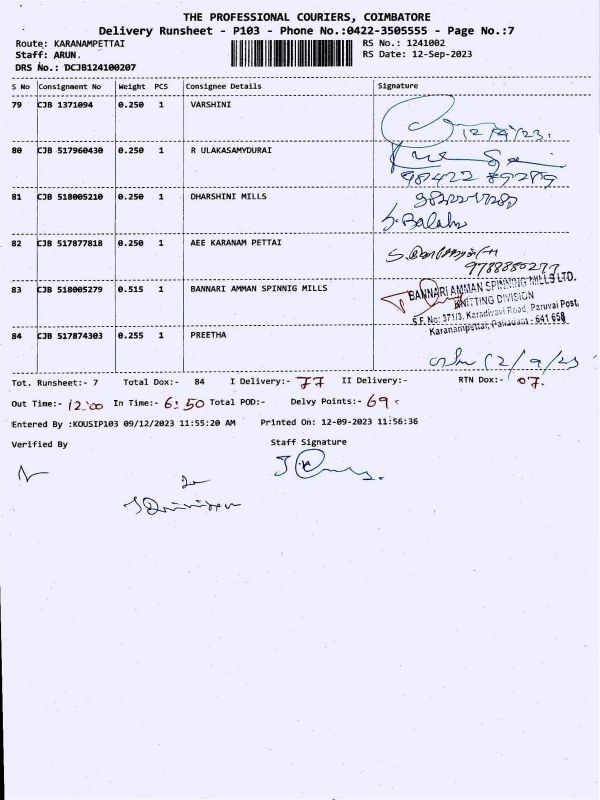 THE PROFESSIONAL COURIERS, COIMBATORE
Delivery Runsheet - P103 - Phone No.:0422-3505555 - Page No.:7
Route: KARANAMPETTAI RS No.: 1241002
Staff: ARUN. RS Date: 12-Sep-2023
DRS No.: DCJB124100207
S No Consignment No Weight PCS Consignee Details Signature
79 CJB 1371094 0.250 1 VARSHINI
12/9/23.
80 CJB 517960430 0.250 1 R ULAKASAMYDURAI
98422 89289
81 CJB 518005210 0.250 1 DHARSHINI MILLS
S. Balahr
82 CJB 517877818 0.250 1 AEE KARANAM PETTAI
9788880277
83 CJB 518005279 0.515 1 BANNARI AMMAN SPINNIG MILLS
BANNARI AMMAN SPINNING MILLS LTD.
KNITTING DIVISION
S.F. No: 371/3, Karadivavi Road, Paruvai Post,
Karanampettai, Palladam - 641 658
84 CJB 517874303 0.255 1 PREETHA
12/9/23
Tot. Runsheet:- 7 Total Dox:- 84 I Delivery:- 77 II Delivery:- RTN Dox:- 07.
Out Time:- 12:00 In Time:- 6:50 Total POD:- Delvy Points:- 69.
Entered By :KOUSIP103 09/12/2023 11:55:20 AM Printed On: 12-09-2023 11:56:36
Verified By Staff Signature